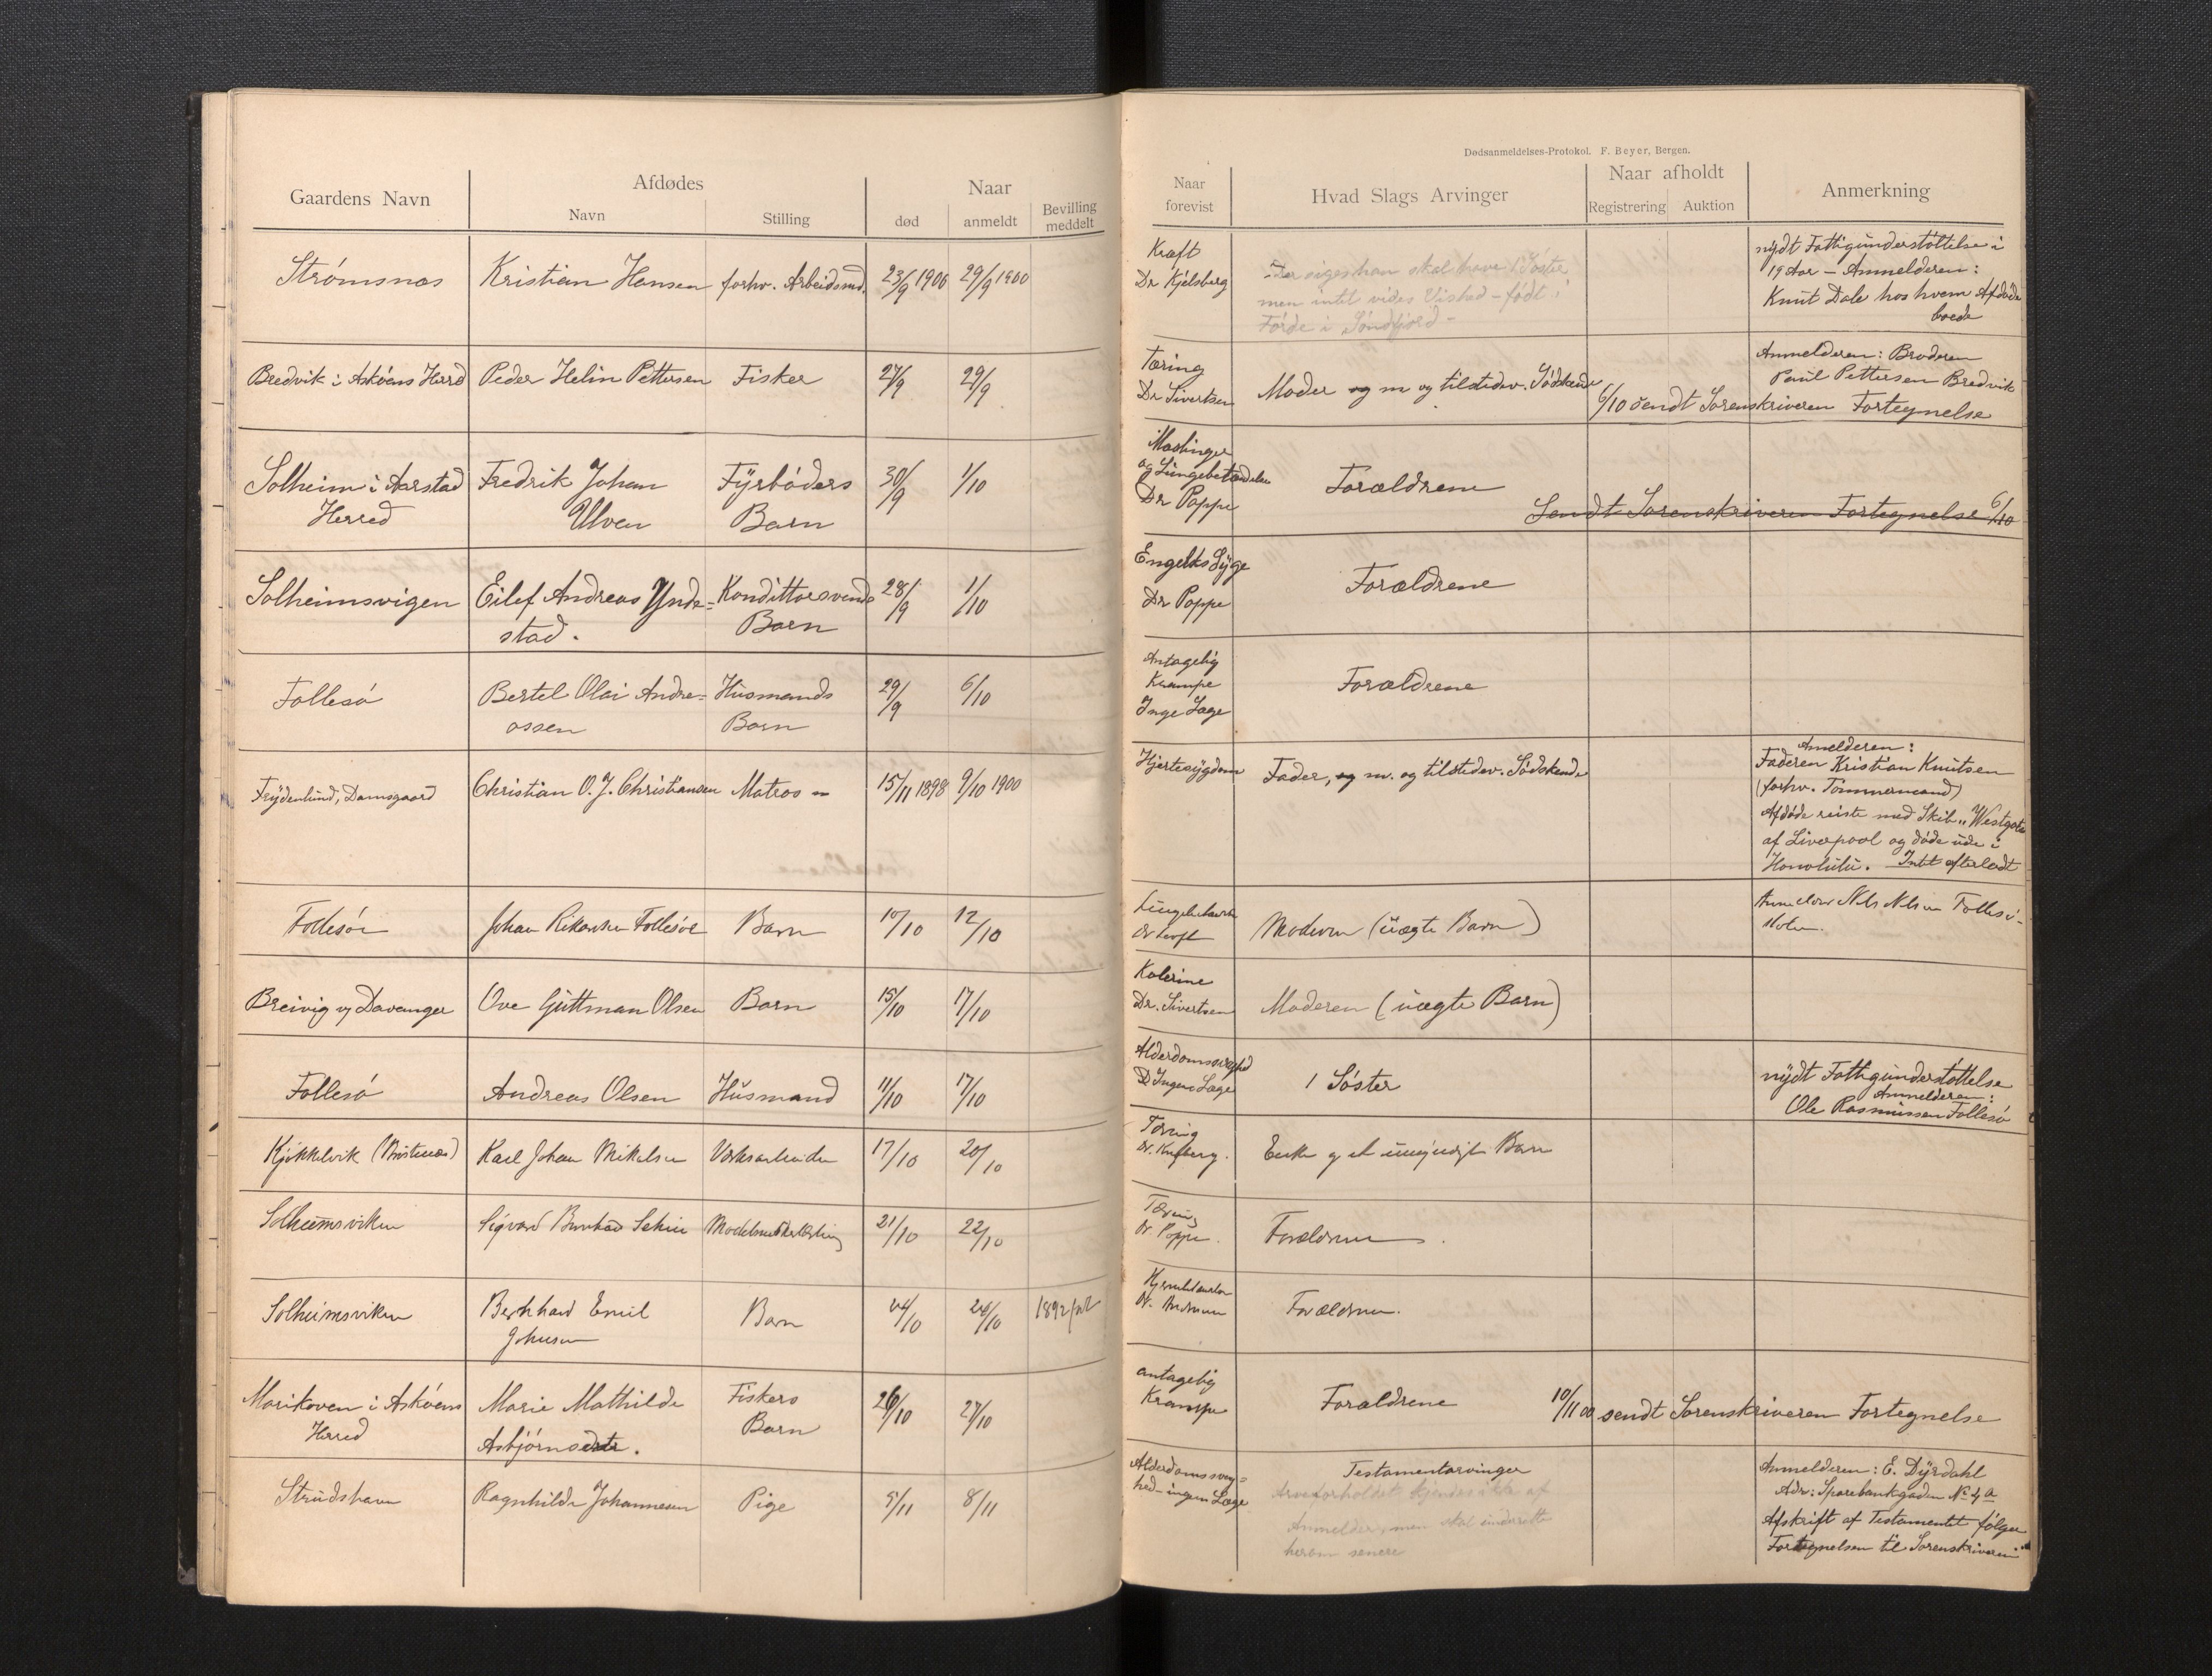 Dødsanmeldelses-Protokol. F. Beyer, Bergen.
Gaardens Navn
Afdødes
Navn
Stilling
Naar
død
anmeldt
Bevilling
meddelt
Naar
forevist
Hvad Slags Arvinger
Naar afholdt
Registrering
Auktion
Anmerkning
Strømsnæs
Kristian Hansen
forhv. Arbeidsmd.
23/9 1900
29/9 1900
Kræft
Dr Kjelsberg
Der siges han skal have 1 Søster
men intet vides Vished - født i
Førde i Søndfjord -
nydt Fattigunderstøttelse i
19 Aar - Anmelderen:
Knut Dale hos hvem Afdøde
boede
Bredvik i Askøens Herred
Peder Helin Pettersen
Fisker
27/9
29/9
Tæring
Dr Sivertsen
Moder og m og tilstedev. Sødskende
Anmelderen: Broderen
Paul Pettersen Bredvik
6/10 sendt Sorenskriveren Fortegnelse
Solheim i Aarstad
Herred
Fredrik Johan
Ulven
Fyrbøders
Barn
30/9
1/10
Mæslinger
og Lungebetændelse
Dr Poppe
Forældrene
Sendt Sorenskriveren Fortegnelse 6/10
Solheimsvigen
Eilef Andreas Ynde=
stad.
Kondittorsvends
Barn
28/9
1/10
Engelsk Syge
Dr Poppe
Forældrene
Follesø
Bertel Olai Andre=
assen
Husmands
Barn
29/9
6/10
Antagelig
Krampe
Inge Læge
Forældrene
Frydenlund, Damsgaard
Christian O. J. Christiansen
Matros
15/11 1898
9/10 1900
Hjertesygdom
Fader, og m. og tilstedev. Sødskende
Anmelderen:
Faderen Kristian Knutsen
(forhv. Tømmermand)
Afdøde reiste med Skib "Westgate
af Liverpool og døde ude i
Honolulu. Intet efterladt
Follesøe
Johan Rikardsen Follesøe
Barn
10/10
12/10
Moderen (uægte Barn)
Anmelder Nils Nilsen Follesø
Breivig og Davanger
Ove Guttman Olsen
Barn
15/10
17/10
Kolerine
Dr. Sivertsen
Moderen (uægte Barn)
Follesø
Andreas Olsen
Husmand
11/10
17/10
Alderdomssvaghed
Ingen Læge
1 Søster
nydt Fattigunderstøttelse
Anmelderen:
Ole Rasmussen Follesø
Kjøkkelvik
Karl Johan Mikelsen
Værksarbeider
17/10
20/10
Tæring
Enke og et umyndigt Barn
Solheimsviken
Sigvard
21/10
22/10
Tæring
Dr. Poppe.
Forældrene
Solheimsviken
Bernhard Emil
Johnsen
Barn
24/10
26/10
Forældrene.
Marikoven i Askøens
Herred
Marie Mathilde
Asbjørnsdtr.
Fiskers
Barn
26/10
27/10
antagelig
Krampe
Forældrene
10/11 00 sendt Sorenskriveren Fortegnelse
Strudshavn
Ragnhilde Johannesen
Pige
5/11
8/11
Alderdomssvag=
hed - ingen Læge
Testamentarvinger
Arveforholdet kjendes ikke af
Anmelder, men skal underrette
herom senere
Anmelderen: E. Dyrdahl
Adr: Sparebankgaden No 4 a
Afskrift af Testamentet følger
Fortegnelsen til Sorenskriveren